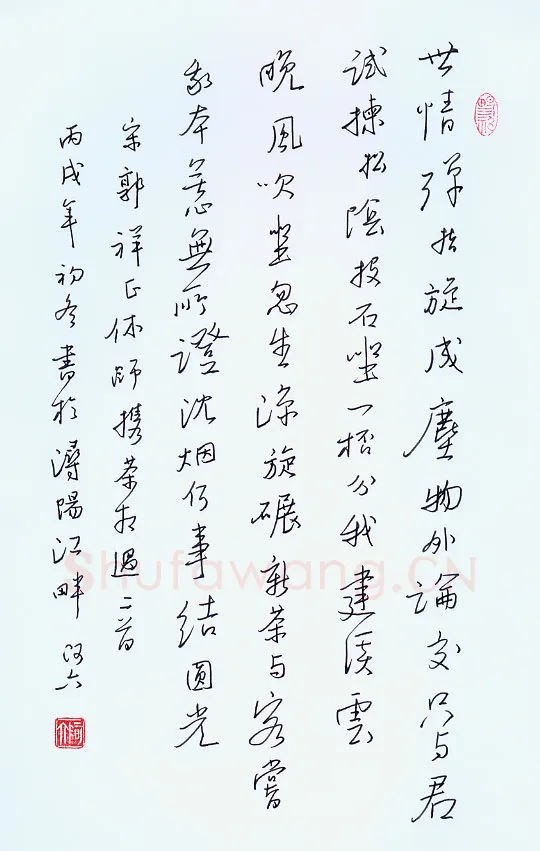 世情弹指旋成塵物外論交只与君
试拣松陰投石坐一梧分我建溪雲
晚風吹坐忽生凉旋碾新茶与客嘗
我本羔無所證沈烟何事結圆光
宋郭祥正休師携茶相過二首
丙戌年初冬書於潯陽江畔 阿六
Shufawang.CN